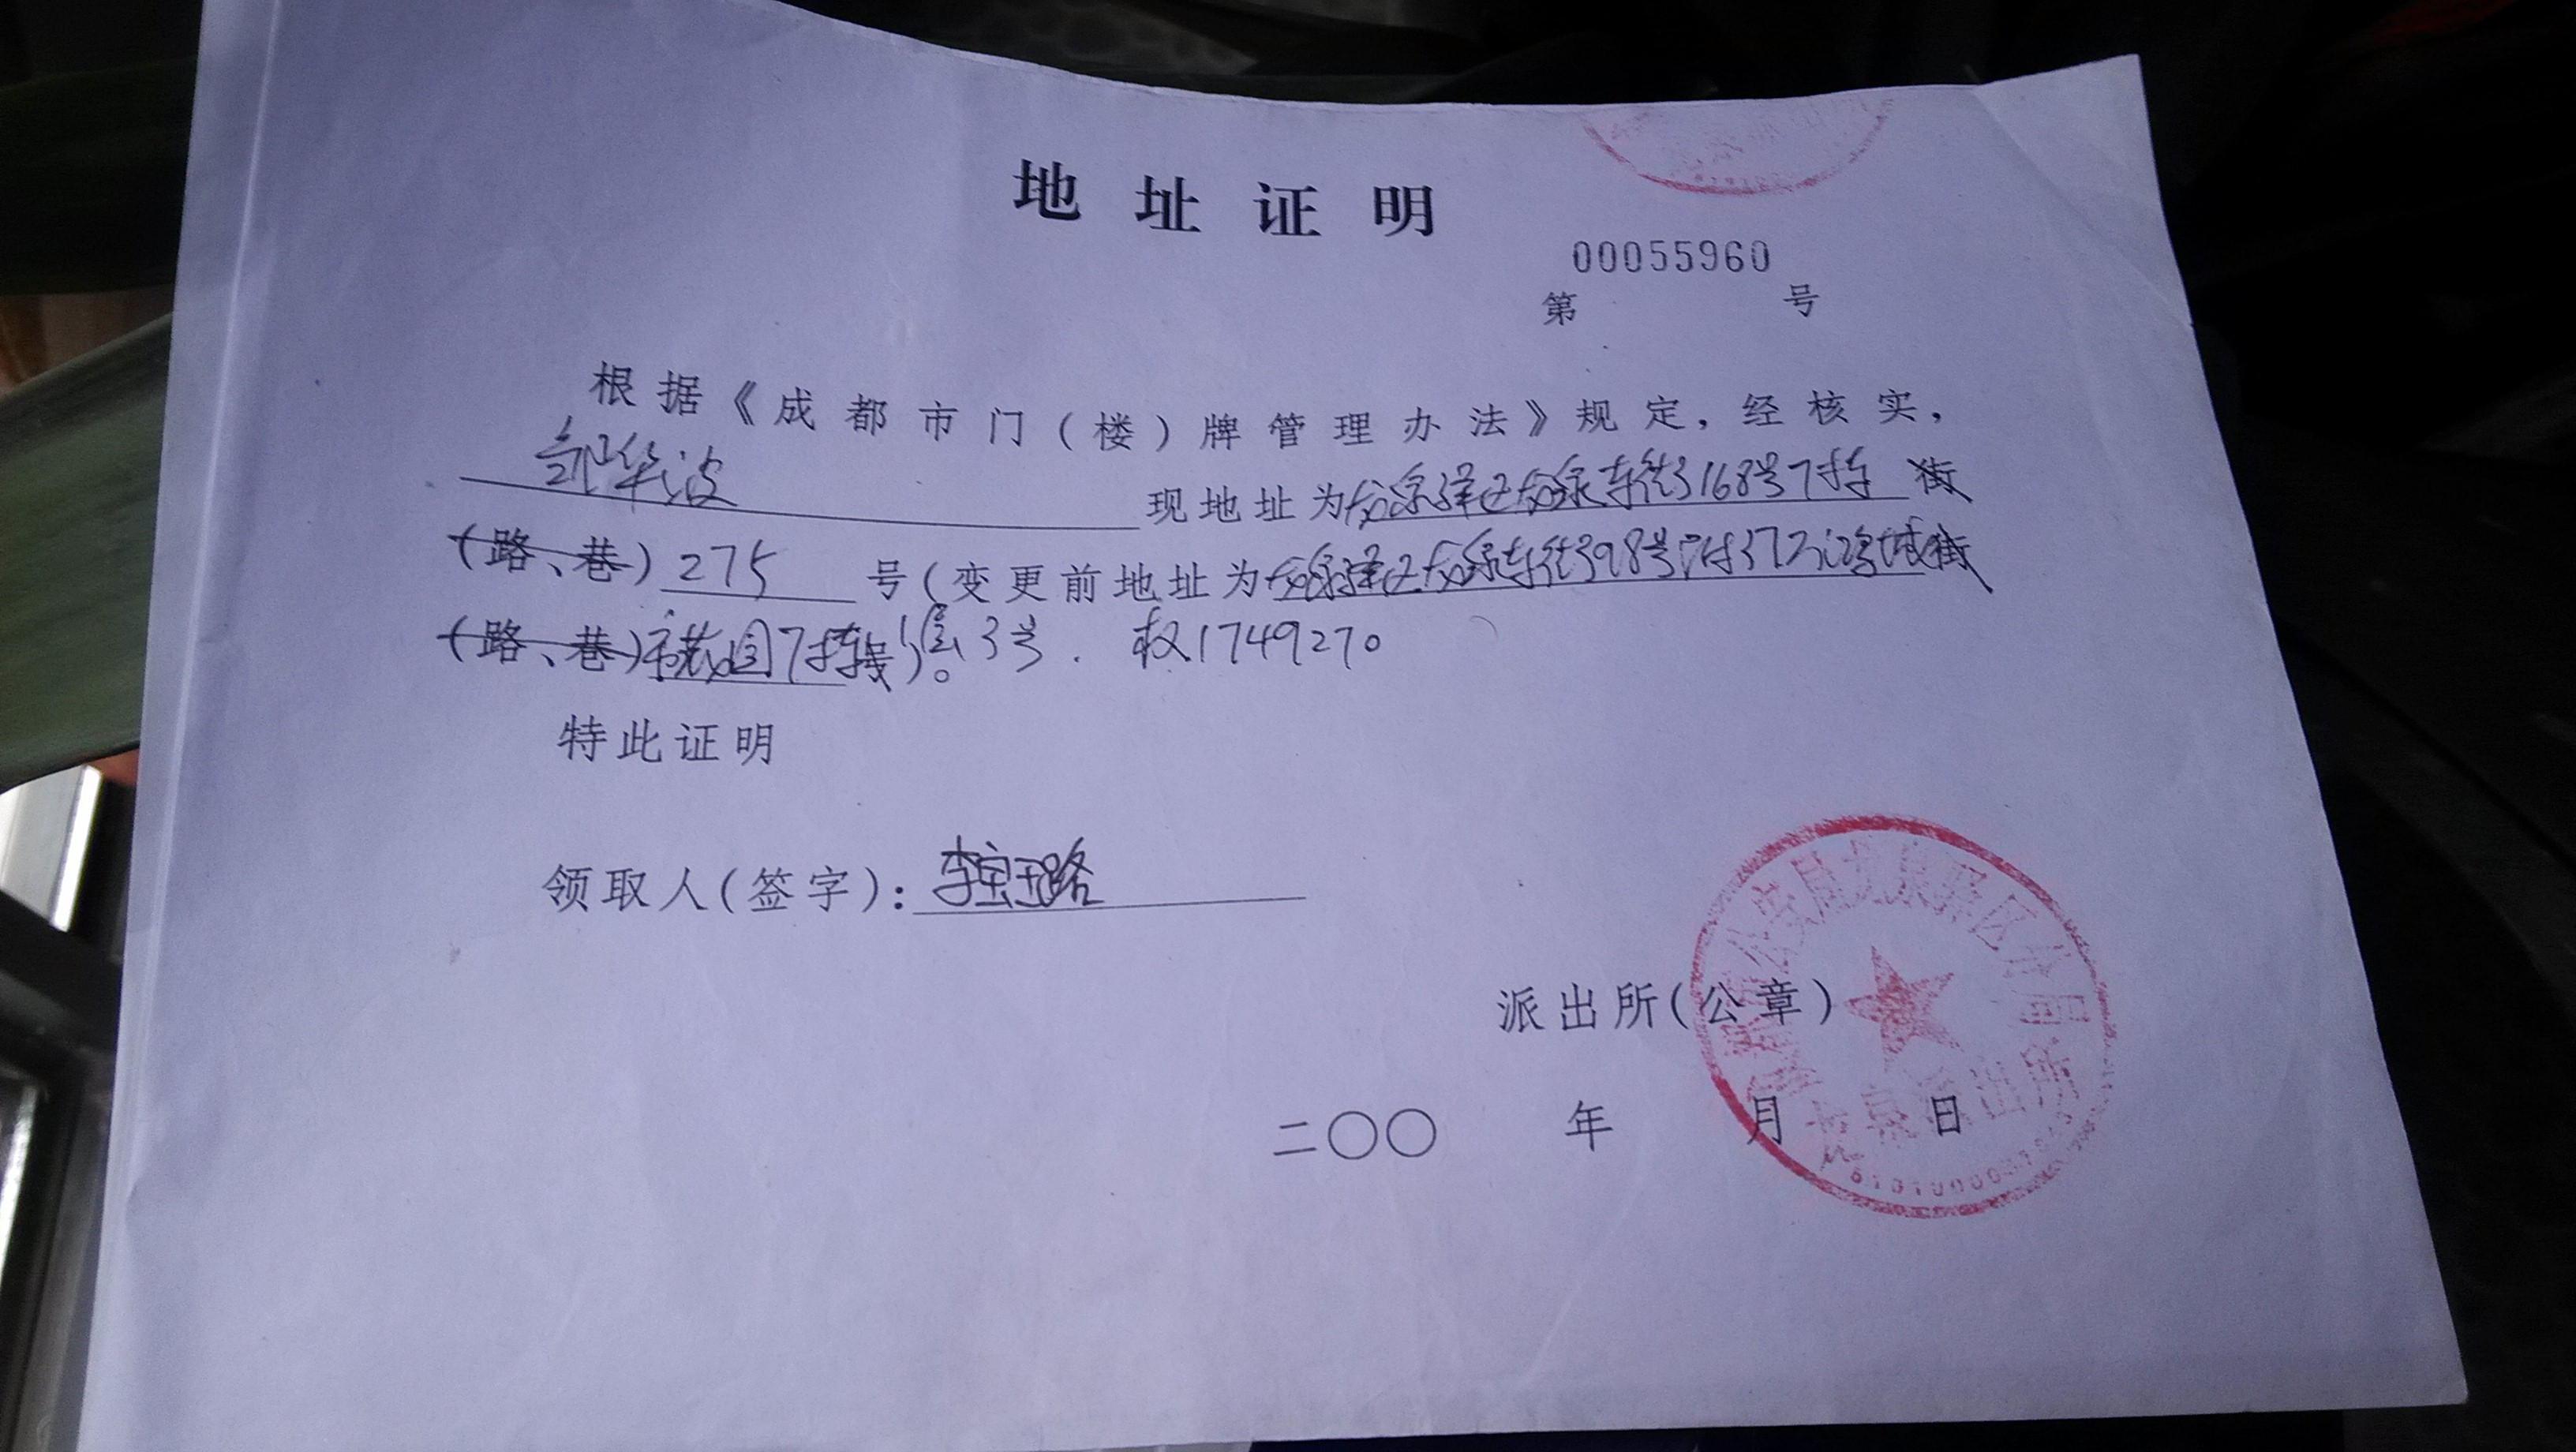 地址证明
00055960
第 号
根据《成都市门(楼)牌管理办法》规定,经核实,
邹华波 现地址为龙泉驿区龙泉东街168号7栋 街
(路、巷) 275 号(变更前地址为龙泉驿区龙泉东街398号附37万鸿城街
(路、巷)市花园7栋号)。1层3号. 权1749270
特此证明
领取人(签字):李宝玉路
派出所(公章)
公安局龙泉驿区分局
龙泉派出所
二〇〇 年 月 日